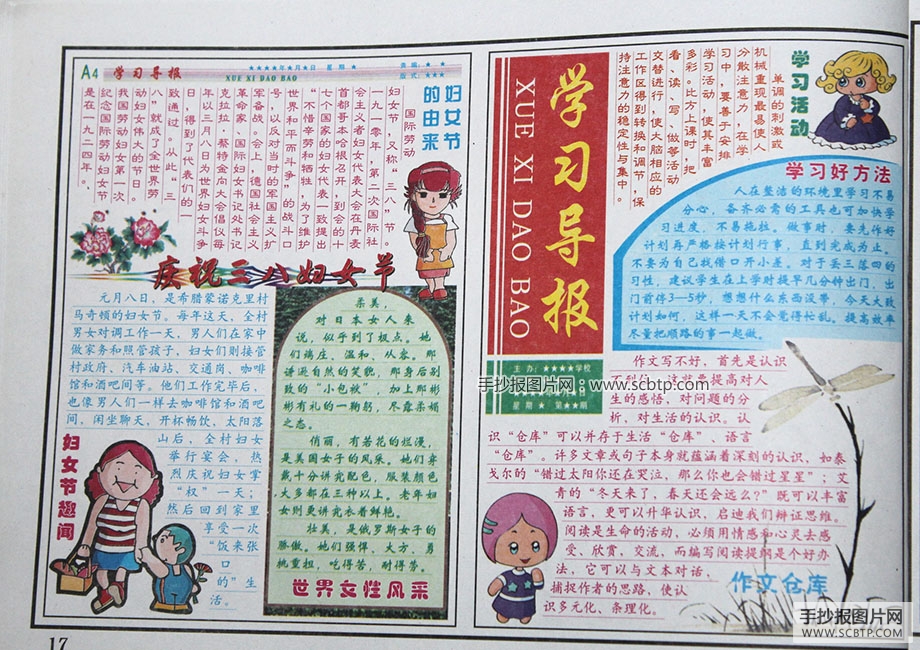 A4 学习导报
★★★★年★月★日 星期★
XUE XI DAO BAO
妇女节
的由来
国际劳动
妇女节，又称“三八”节。
一九一零年，第二次国际社
会主义者妇女代表大会在丹麦
首都哥本哈根召开，到会的十
七个国家的妇女代表一致提出
“不惜辛劳和牺牲，为了维护
世界和平而斗争”的战斗口
号，以反对当时的军国主义扩
军备战。会上，德国社会主义
革命家、国际妇女书记处书记
克拉拉·蔡特金向大会倡仪每
年以三月八日为世界妇女斗争
日，得到了代表们的一
致通过。从此“三
八”就成了全世界劳
动妇女伟大的节日。
我国劳动妇女第一次
纪念国际劳动妇女节
是在一九二四年。
庆祝三八妇女节
元月八日，是希腊蒙诺克里村
马奇顿的妇女节。每年这天，全村
男女对调工作一天，男人们在家中
做家务和照管孩子，妇女们则接管
村政府、汽车油站、交通岗、咖啡
馆和酒吧间等。他们工作完毕后，
也像男人们一样去咖啡馆和酒吧
间，闲坐聊天，开杯畅饮，太阳落
山后，全村妇女
举行宴会。热
烈庆祝妇女掌
“权”一天；
然后回到家里
享受一次
“饭来张
口
的”生
活。
妇女节趣闻
柔美，
对日本女人来
说，似乎到了极点。她
们端庄、温和、从容。那
谦逊自然的笑貌，那身后别
致的“小包袱”，加上那彬
彬有礼的一鞠躬，尽露柔媚
之态。
俏丽，有若花的烂漫，
是美国女子的风采。她们身
材十分讲究配色，服装颜色
大多都在三种以上。老年妇
女则更讲究衣着鲜艳。
壮美，是俄罗斯女子的
骄傲。她们强悍，大方，勇
挑重担，吃得苦，耐得劳。
世界女性风采
17
学习导报
XUE XI DAO BAO
主办：★★★★学校
星期★ 第★★期
学习活动
单调的刺激或
机械重现最易使人
分散注意力，在学
习中，要善于安排
学习活动，使其丰富
多彩。比方上课时，把
看、读、写、做等活动
交替进行，使大脑相应的
工作区得到转换和调节，保
持注意力的稳定性与集中。
学习好方法
人在整洁的环境里学习不易
分心，备齐必需的工具也可加快学
习进度，不易拖拉。做事时，要先作好
计划再严格按计划行事，直到完成为止。
不要为自己找借口开小差。对于丢三落四的
习性，建议学生在上学时提早几分钟出门，出
门前停3—5秒，想想什么东西没带，今天大致
计划如何，这样一天不会觉得忙乱。提高效率
尽量把顺路的事一起做。
作文写不好，首先是认识
提高对人
生的感悟，对问题的分
析，对生活的认识。认
识“仓库”可以并存于生活“仓库”、语言
“仓库”。许多文章或句子本身就蕴涵着深刻的认识，如泰
戈尔的“错过太阳你还在哭泣，那么你也会错过星星”；艾
青的“冬天来了，春天还会远么？”既可以丰富
语言，更可以升华认识，启迪我们辩证思维。
阅读是生命的活动，必须用情感和心灵去感
受、欣赏，交流，而编写阅读提纲是个好办
法，它可以与文本对话，
捕捉作者的思路，使认
识多元化、条理化。
作文仓库
手抄报图片网：www.scbtp.com
手抄报图片网
WWW.SCBTP.COM